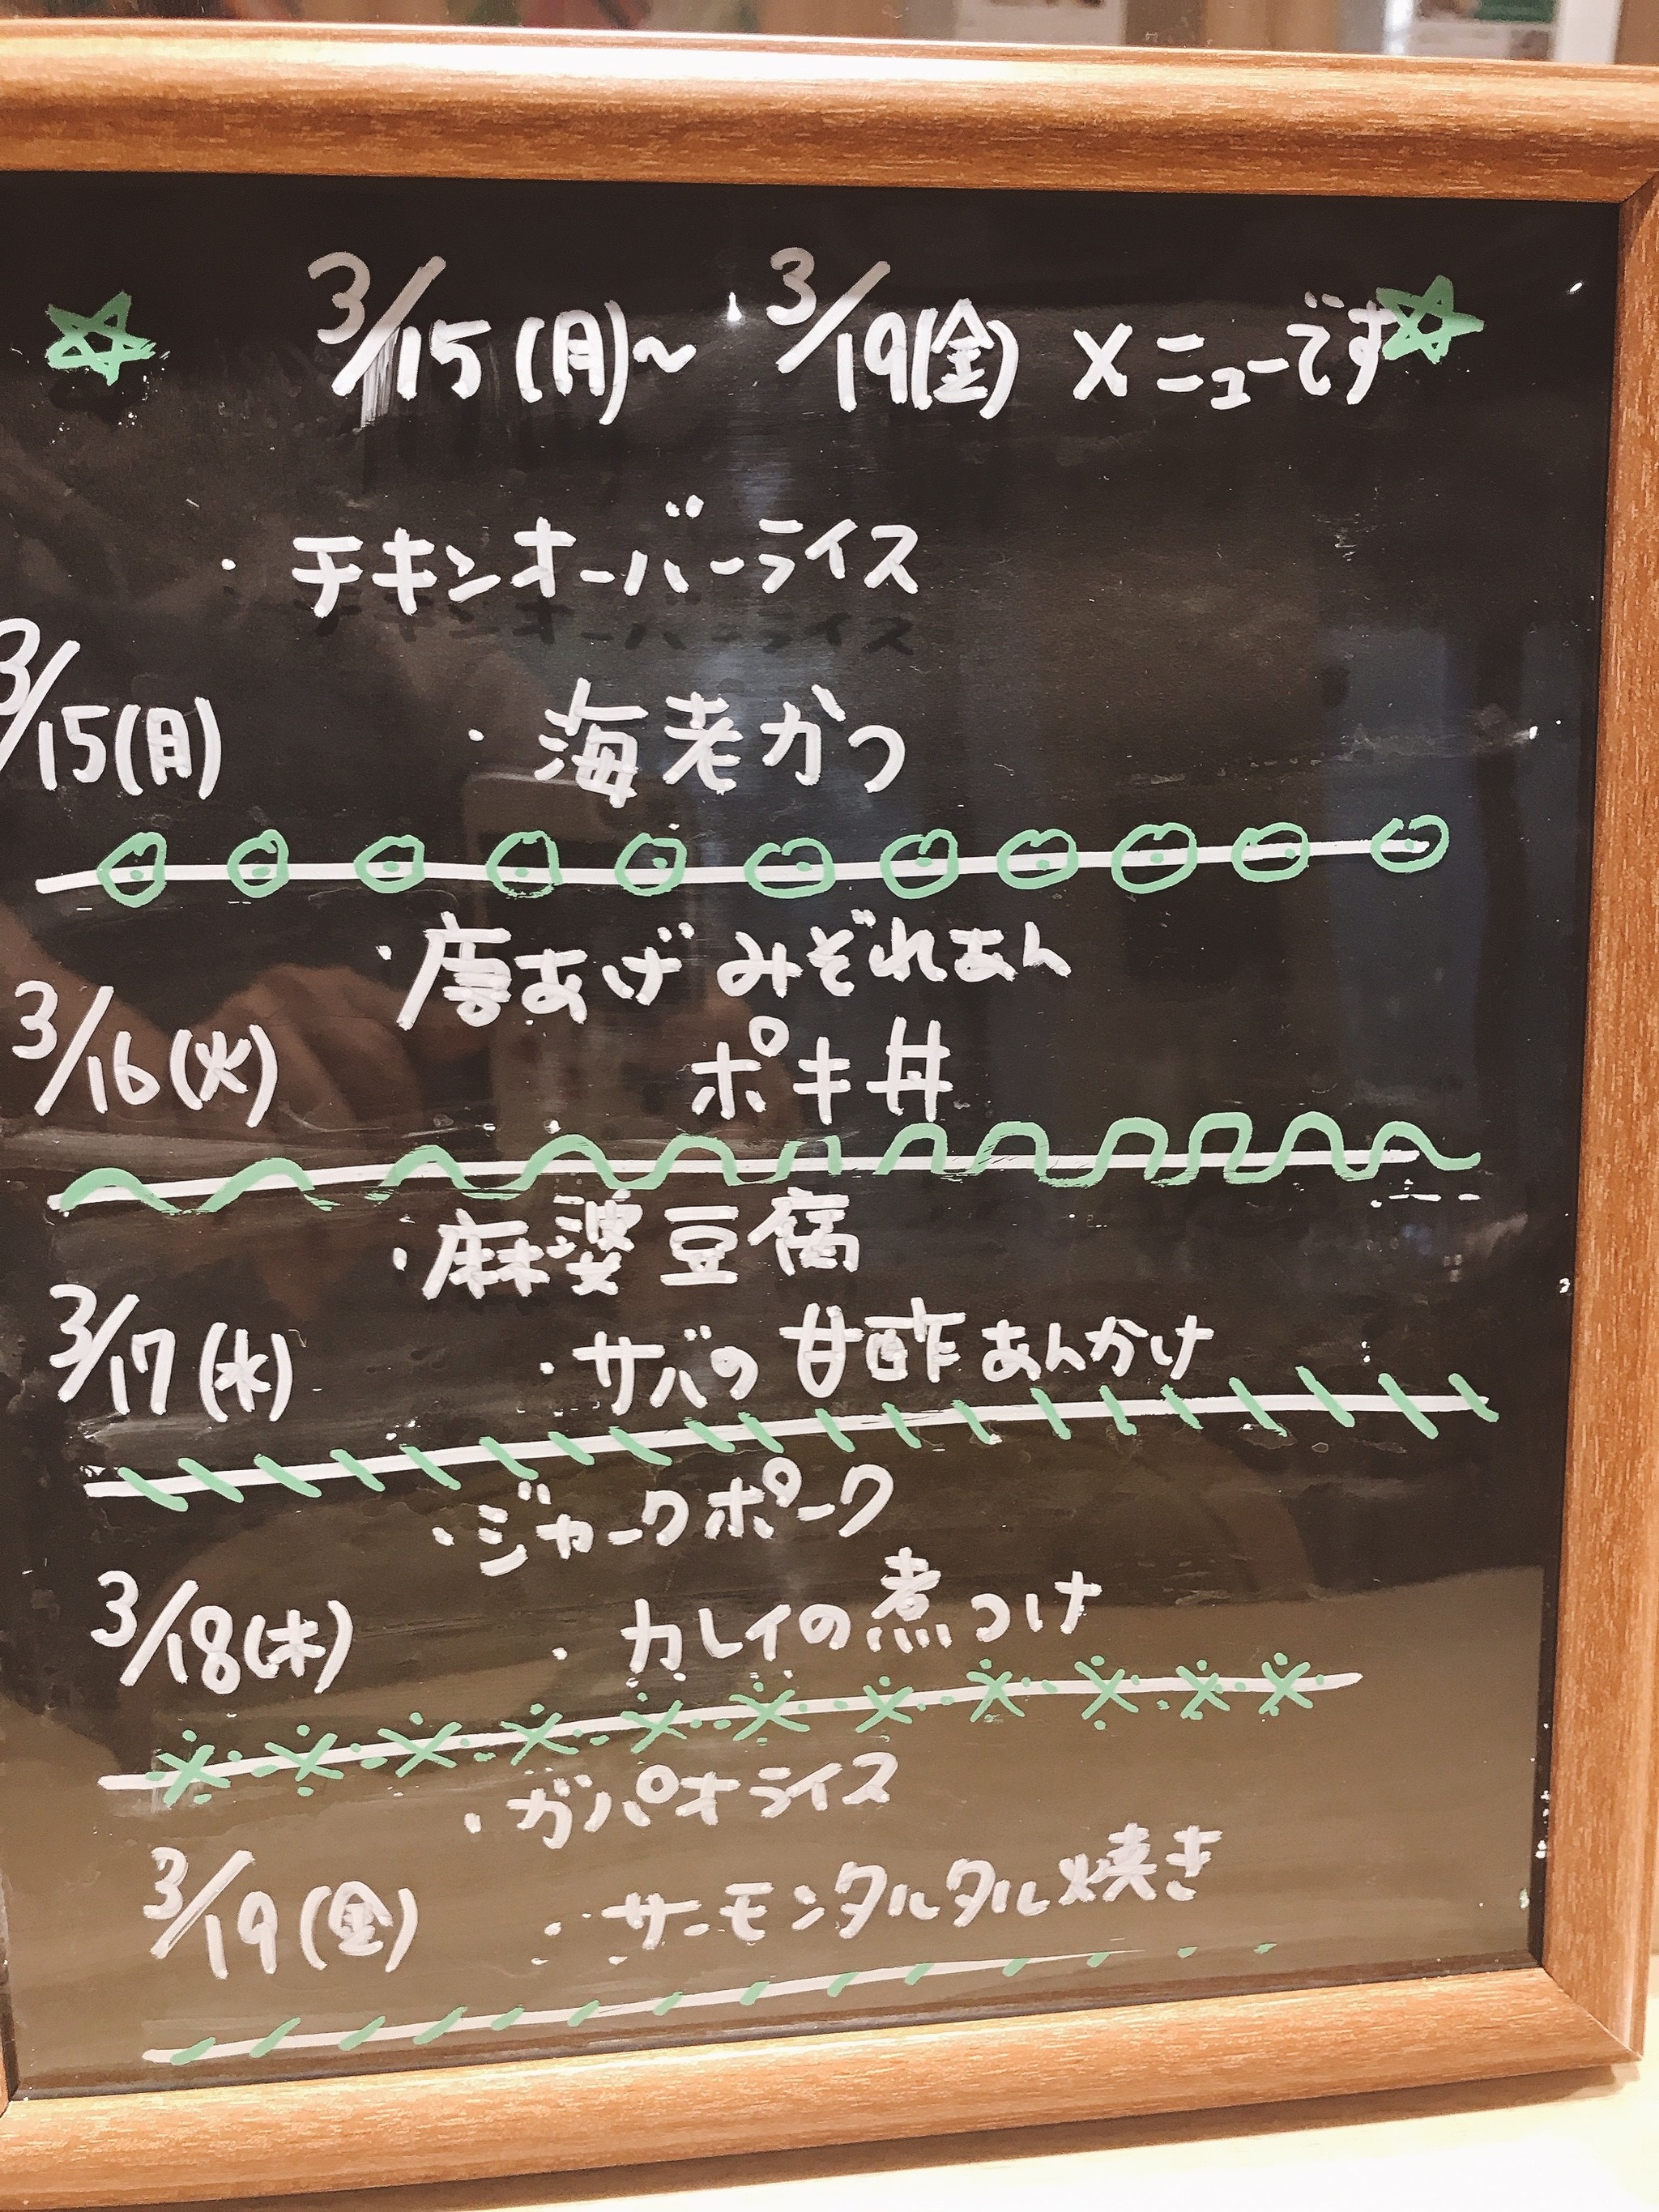 3/15(月)~ 3/19(金) メニューです
・チキンオーバーライス
3/15(月)
・海老かつ
・唐あげみぞれあん
3/16(火)
ポキ丼
・麻婆豆腐
3/17(水)
・サバの甘酢あんかけ
・ジャークポーク
3/18(木)
・カレイの煮つけ
・ガパオライス
3/19(金)
・サーモンタルタル焼き